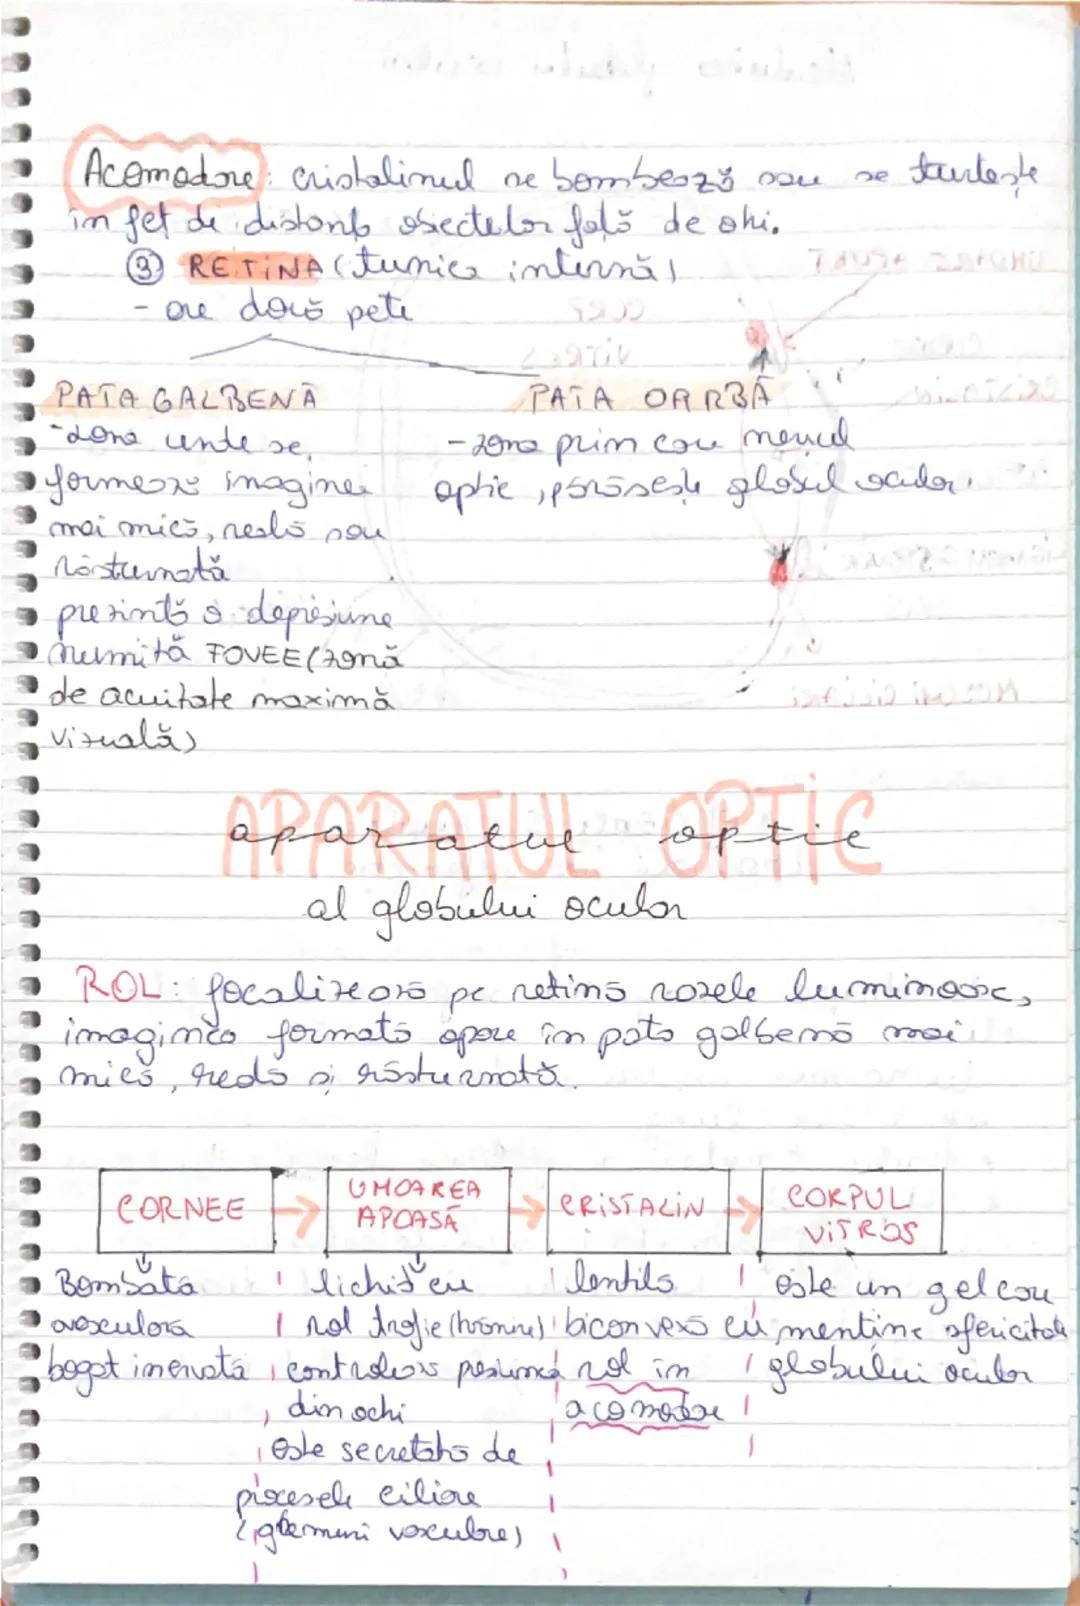 Acomodare: cristalinul se bombează sau se turtește
în fct de distanța obiectelor față de ochi.
③ RETINA (tunica internă)
- are două pete
PATA GALBENĂ
PATA OARBĂ
- zona unde se
formează imaginea
mai mică, reală sau
răsturnată
prezintă o depresiune
numită FOVEE (zonă
de acuitate maximă
vizuală)
- zona prin care nervul
optic, părăsește globul ocular.
APARATUL OPTIC
aparatul optic
al globului ocular
ROL: focalizează pe retină razele luminoase,
imaginea formată apare în pata galbenă mai
mică, reală și răsturnată.
CORNEE
UMOAREA
APOASĂ
CRISTALIN
CORPUL
VITROS
Bombată
avasculară
bogat inervată
lichid cu
rol trofic (hrănire)
controlează presiunea
din ochi
este secretată de
procesele ciliare
(ghemuri vasculare)
lentilă
biconvexă cu
rol în
acomodare
este un gel care
menține sfericitatea
globului ocular